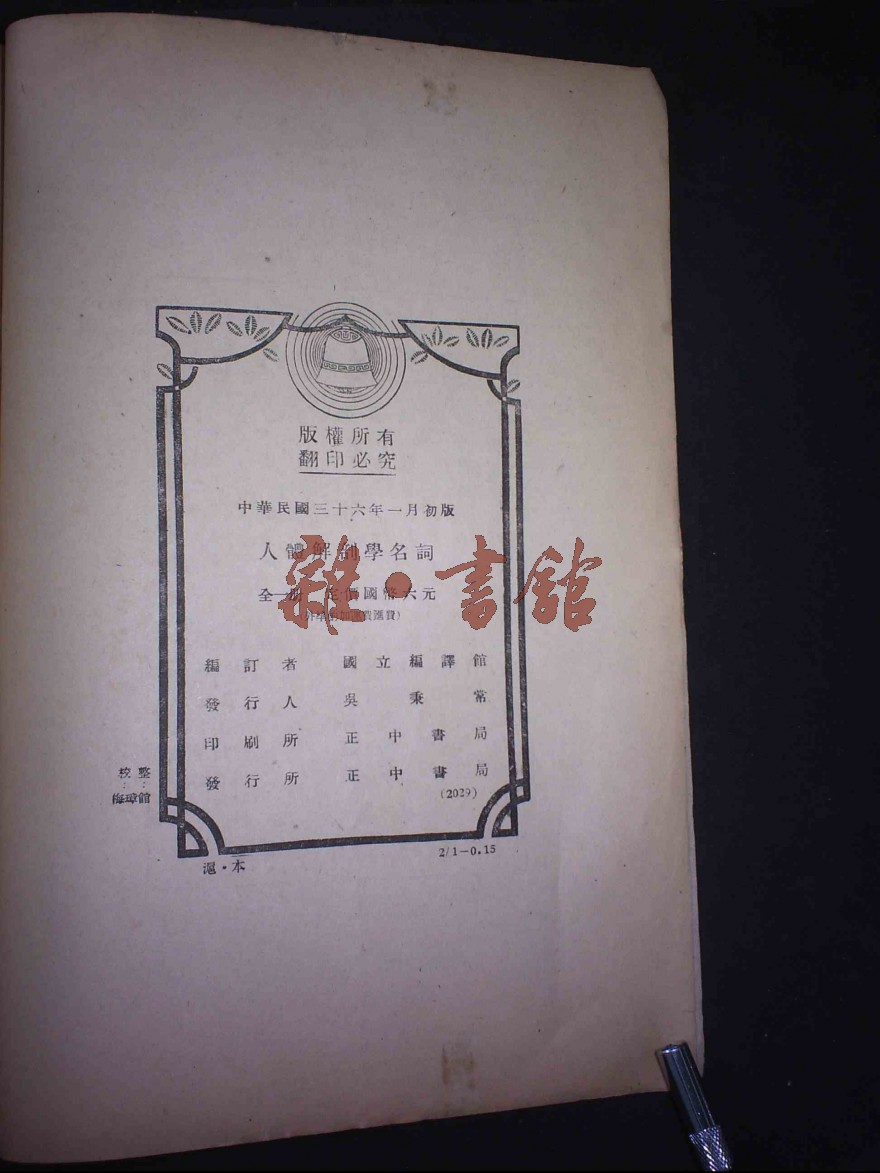 版權所有
翻印必究
中華民國三十六年一月初版
人體解剖學名詞
全一冊 定價國幣六元
(外埠酌加運費匯費)
雜·書館
編訂者 國立編譯館
發行人 吳秉常
印刷所 正中書局
發行所 正中書局
(2029)
校整
：：
梅璋館
滬·本
2/1—0.15